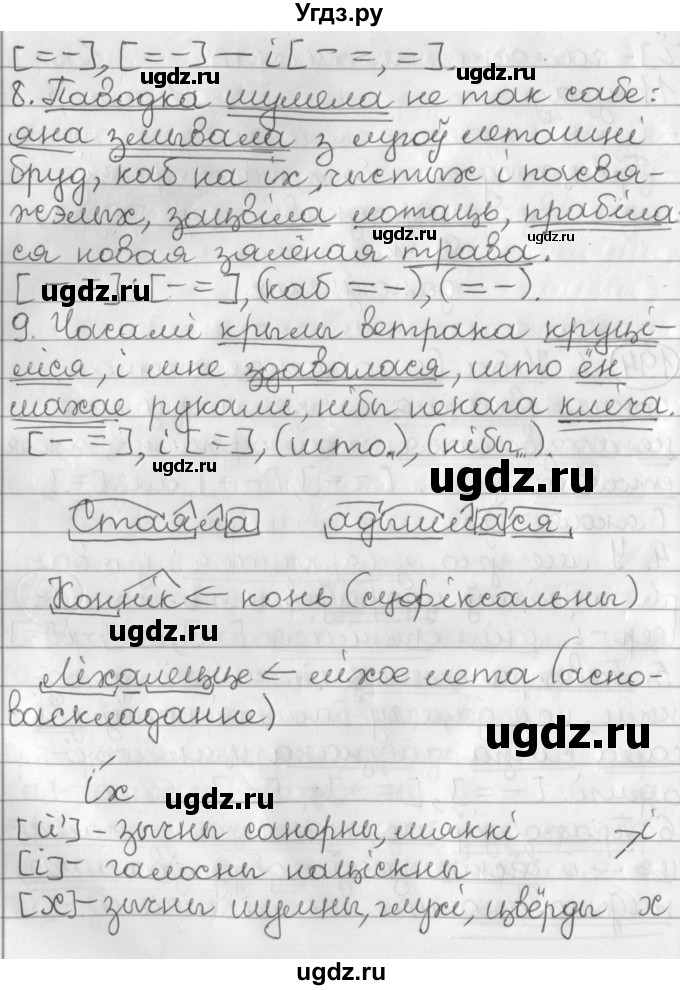 Угдз.ру
[= –], [= –] – і [– =, =].
угдз.ru
8. Паводка шумела не так сабе:
яна змывала з лугоў леташні
бруд, каб на іх, чыстых і пасвя-
жэлых, зацвіла лотаць, прабіла-
угдз.ru
угдз.ru
ся новая зялёная трава.
[– =]: [– =], (каб = –), (= –).
ugdz.ru
9. Часамі крылы ветрака круці-
ліся, і мне здавалася, што ён
махае рукамі, нібы некага кліча.
[– =], і [=], (што...), (нібы...).
ugdz.ru
ugdz.ru
Стаяла адышлася
Коннік ← конь (суфіксальны)
ugdz.ru
Ліхалецце ← ліхое лета (асно-
васкладанне)
ugdz.ru
іх
ugdz.ru
[й'] – зычны санорны, мяккі > і
[і] – галосны націскны
[х] – зычны шумны, глухі, цвёрды х
ugdz.ru